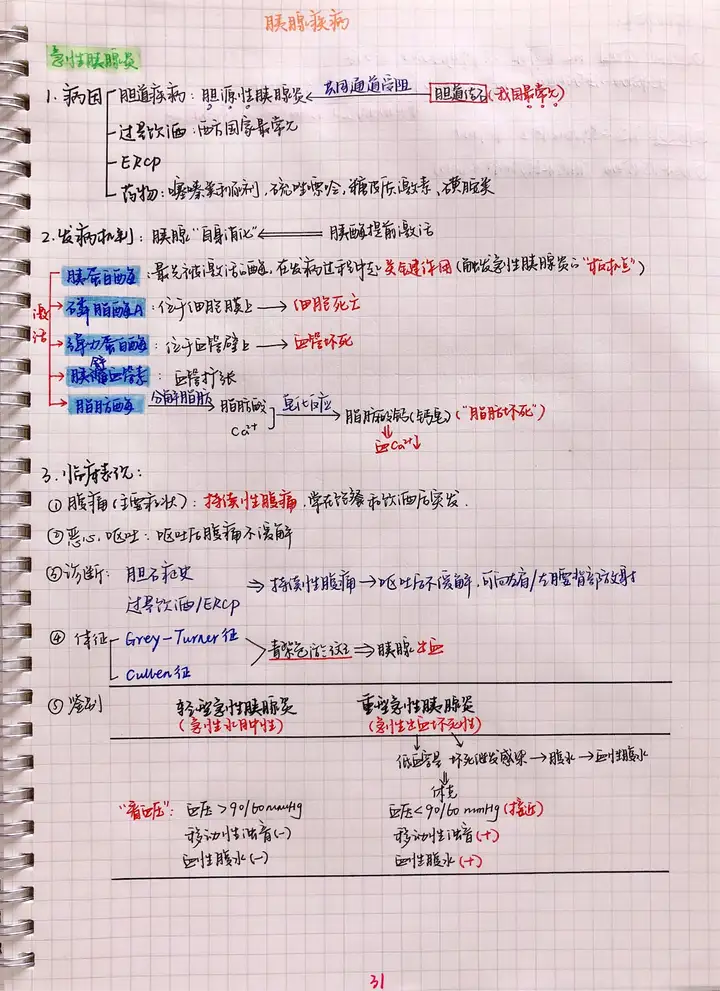 胰腺疾病
急性胰腺炎
1. 病因 胆道疾病：胆源性胰腺炎 ← 共同通道受阻 胆道结石(我国最常见)
过量饮酒：西方国家最常见
ERCP
药物：噻嗪类利尿剂，硫唑嘌呤，糖皮质激素、磺胺类
2. 发病机制：胰腺"自身消化" ⇐ 胰酶提前激活
激活
胰蛋白酶：最先被激活的酶，在发病过程中起关键作用(触发急性胰腺炎的"扳机点")
磷脂酶A：位于细胞膜上 → 细胞死亡
弹力蛋白酶：位于血管壁上 → 血管坏死
胰舒血管素：血管扩张
脂肪酶 分解脂肪 → 脂肪酸 皂化反应 → 脂肪酸钙(钙皂)("脂肪坏死")
Ca²⁺ ⇓
血Ca²⁺↓
3. 临床表现：
① 腹痛(主要症状)：持续性腹痛，常在饱餐和饮酒后突发.
② 恶心，呕吐：呕吐后腹痛不缓解
③ 诊断： 胆石症史 ⇒ 持续性腹痛 → 呕吐后不缓解，可向左肩/左腰背部放射
过量饮酒/ERCP
④ 体征 Grey-Turner征 青紫色 ⇒ 胰腺出血
Cullen征
⑤ 鉴别 轻型急性胰腺炎 重型急性胰腺炎
(急性水肿性) (急性出血坏死性)
低血容量 坏死继发感染 → 腹水 → 血性腹水
⇓
休克
"看血压"： 血压>90/60mmHg 血压<90/60 mmHg(接近)
移动性浊音(-) 移动性浊音(+)
血性腹水(-) 血性腹水(+)
31